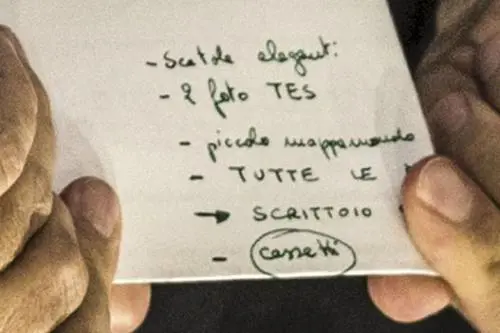 - Scatole eleganti:
- 2 foto TES
- piccolo mappamondo
- TUTTE LE
→ SCRITTOIO
- cassetti